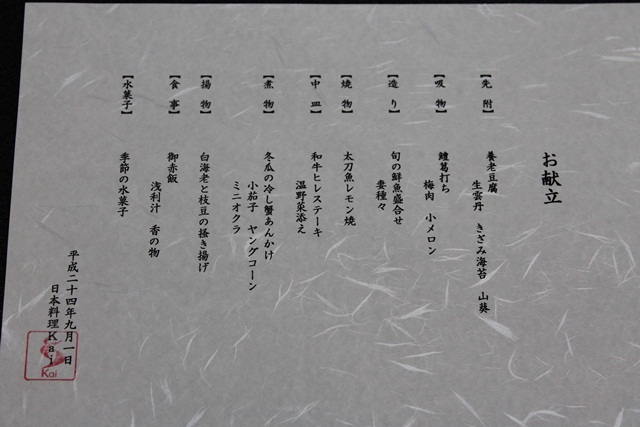 お献立
【先附】
養老豆腐
生雲丹　きざみ海苔　山葵
【吸物】
鱧葛打ち
梅肉　小メロン
【造り】
旬の鮮魚盛合せ
妻種々
【焼物】
太刀魚レモン焼
【中皿】
和牛ヒレステーキ
温野菜添え
【煮物】
冬瓜の冷し蟹あんかけ
小茄子　ヤングコーン
ミニオクラ
【揚物】
白海老と枝豆の掻き揚げ
【食事】
御赤飯
浅利汁　香の物
【水菓子】
季節の水菓子
平成二十四年九月一日
日本料理Kai
Kai